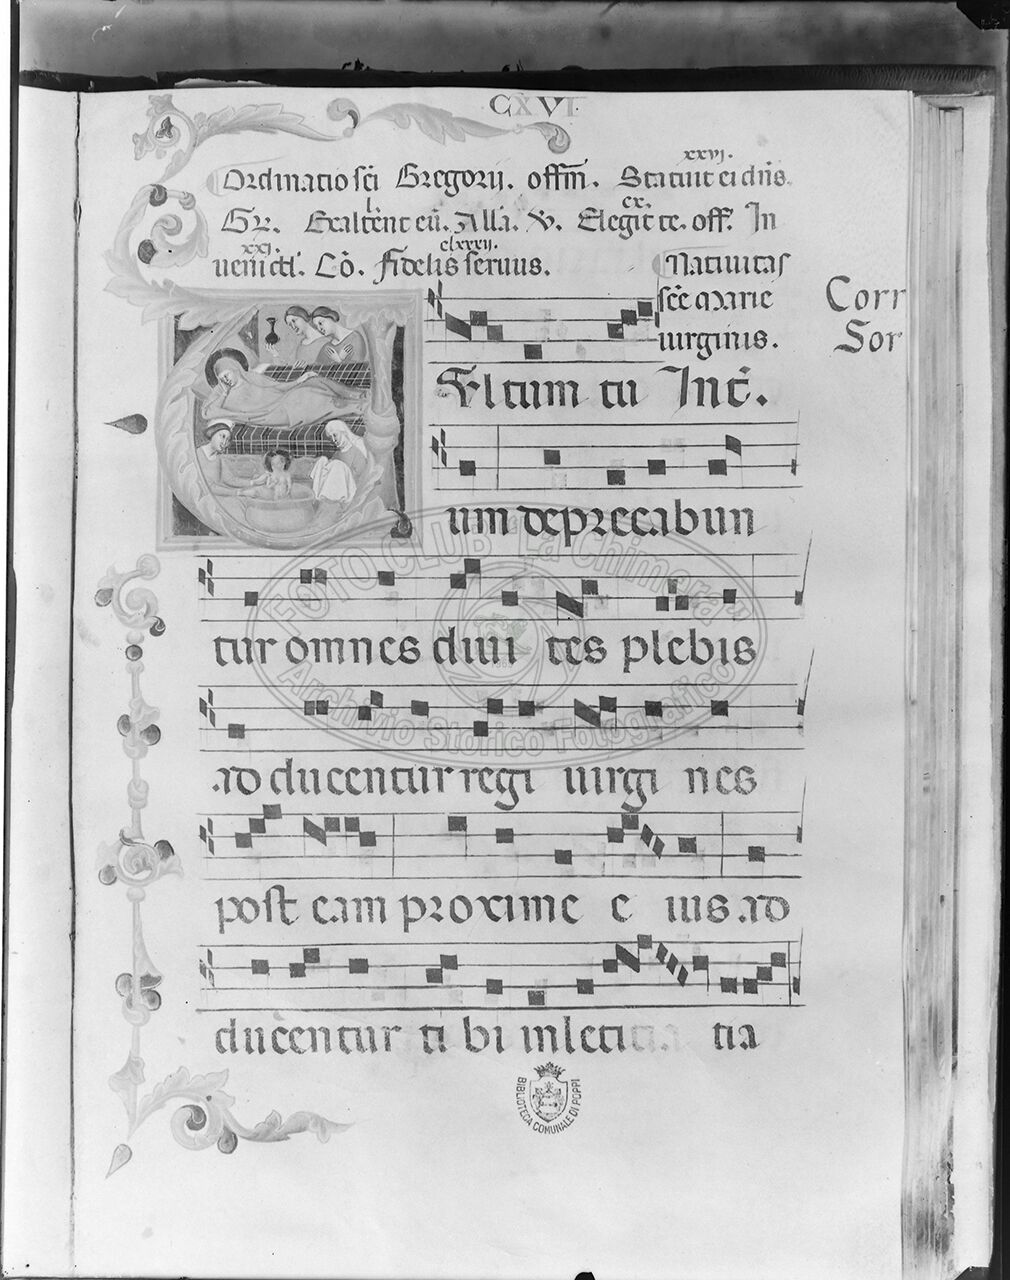 CXVI
xxvj.
Ordinatio sci Gregorij. offm. Statuit ei dns.
l. cx.
Gr. Exaltent eu. Alla. V. Elegit te. off. In
xxj. clxxxij.
ueni Co. Fidelis seruus. Natiuitas
sce Marie
uirginis.
Corr
Sor
Vltum tu Int.
um deprecabun
tur omnes diui tes plebis
ad ducentur regi uirgi nes
post eam proxime e ius ad
ducentur ti bi in leti tia
FOTO CLUB "La Chimera"
Archivio Storico Fotografico
BIBLIOTECA COMUNALE DI POPPI